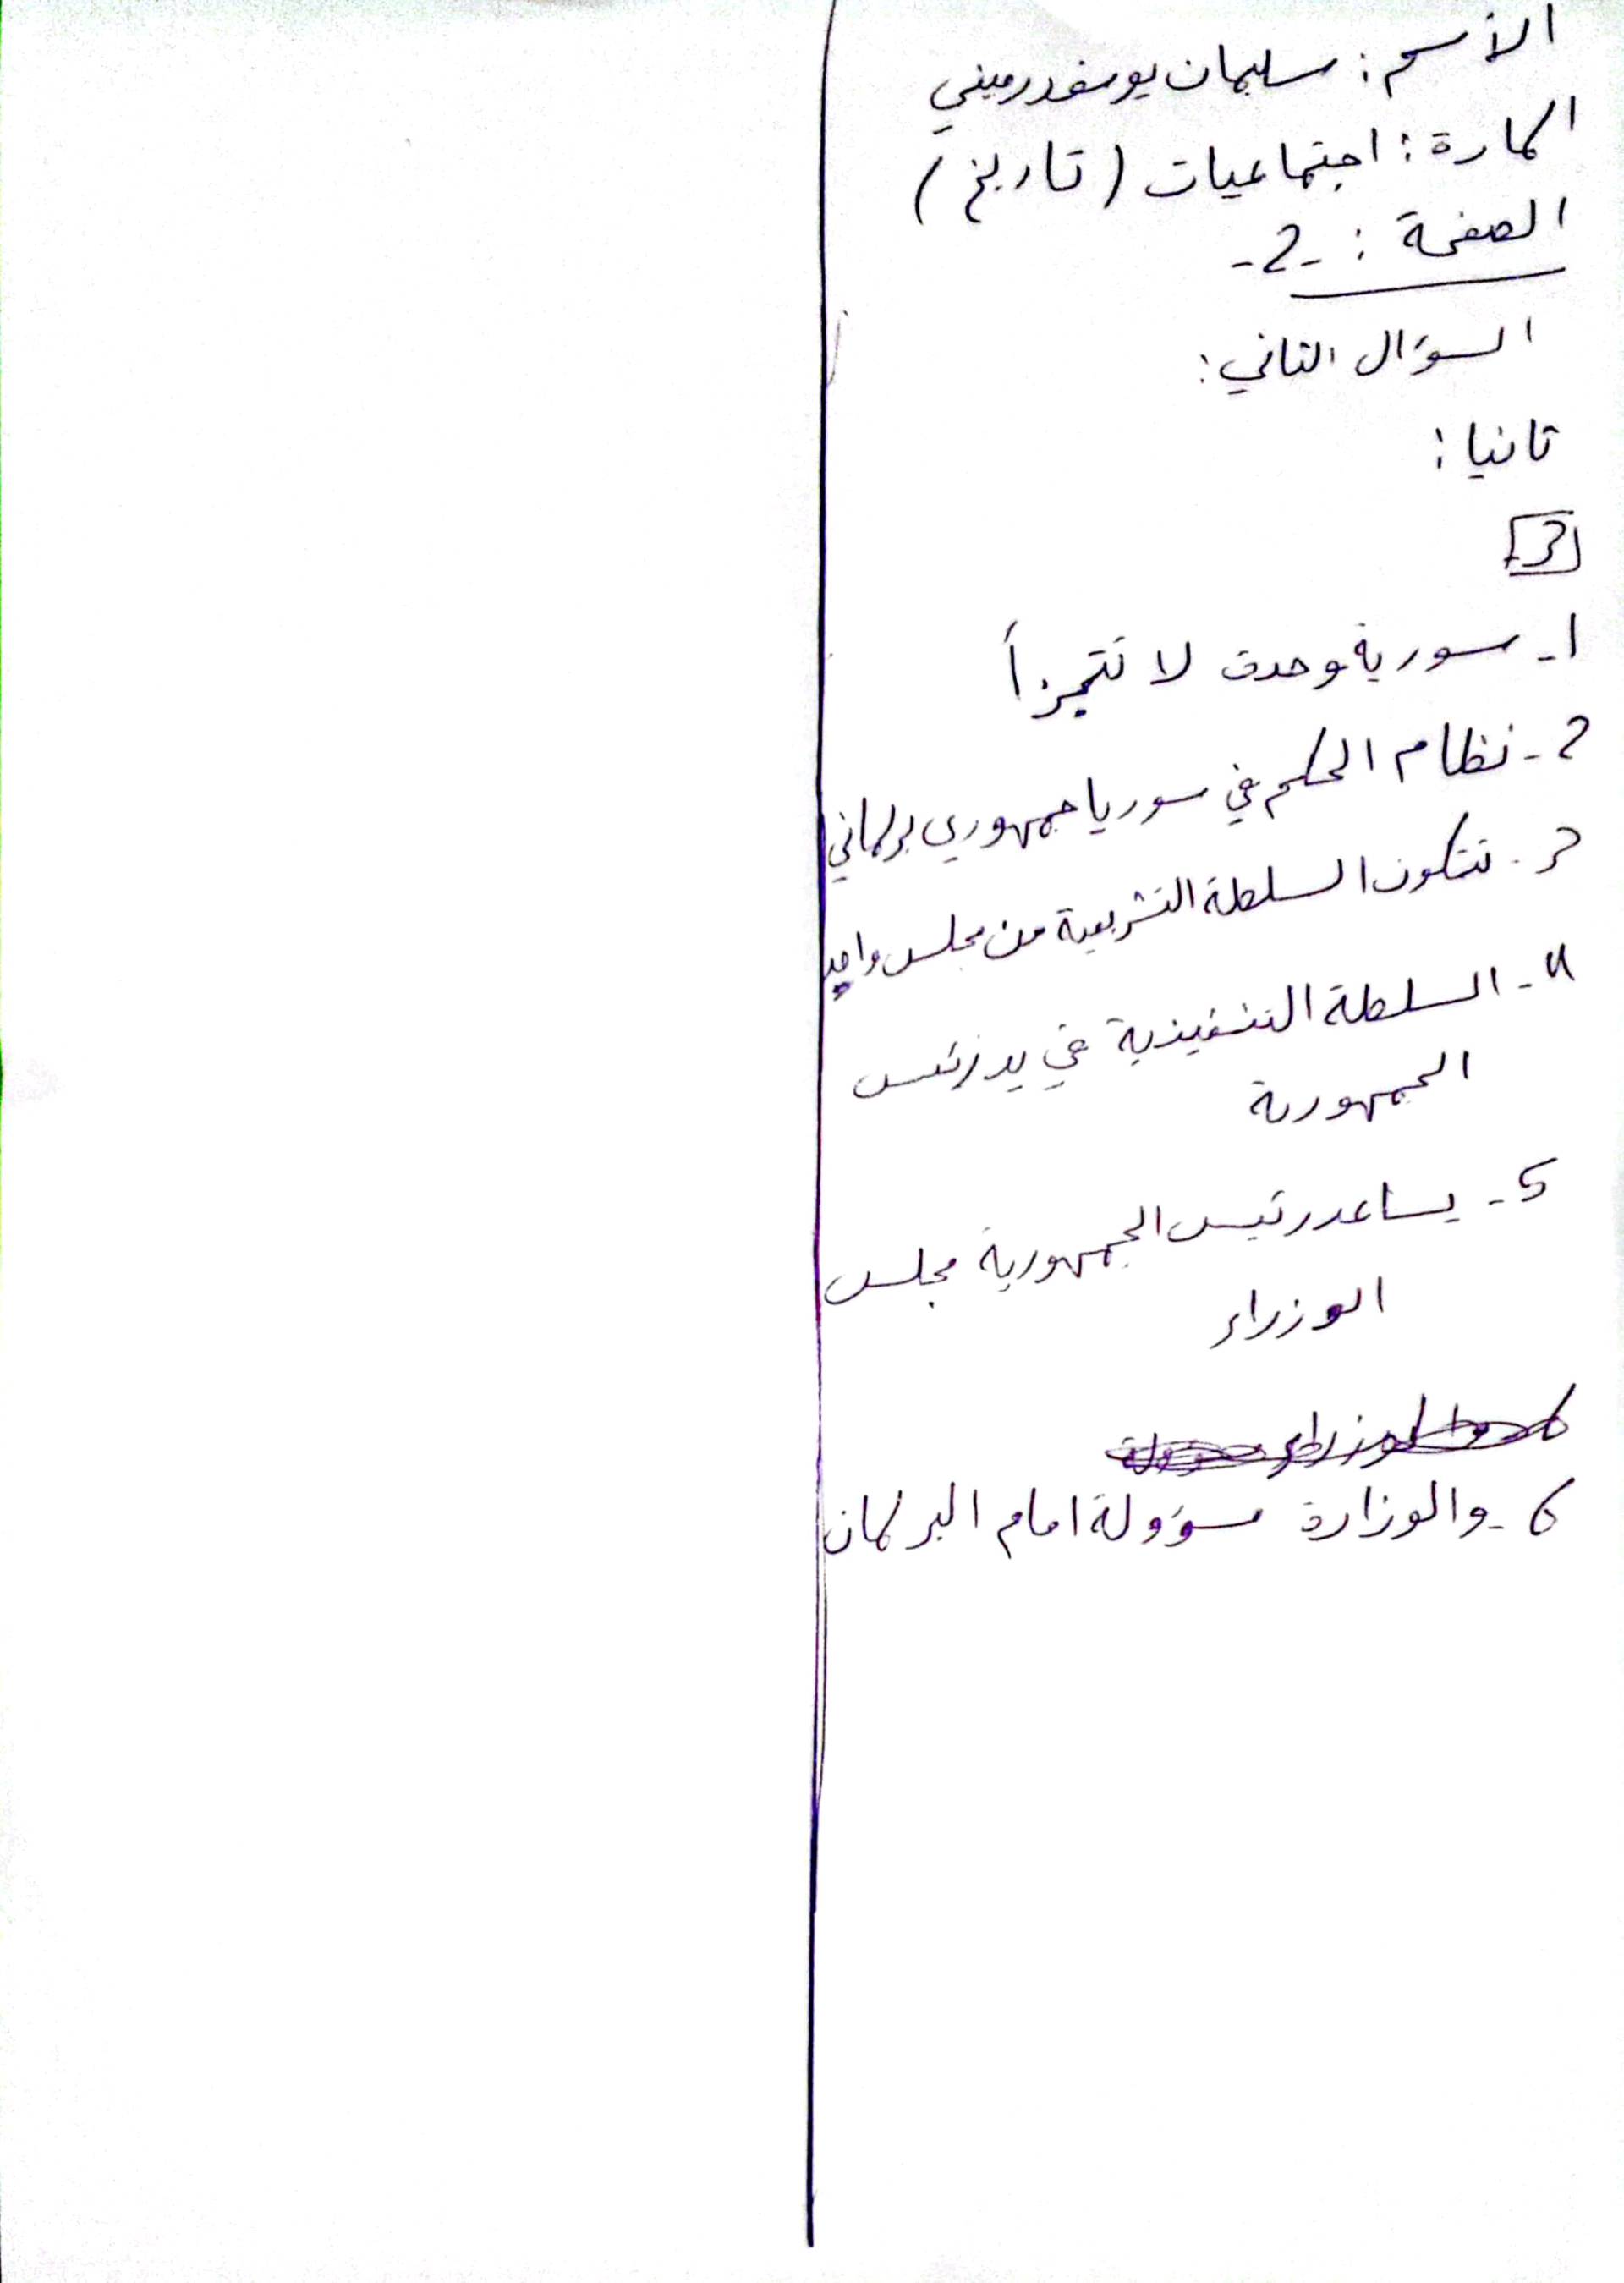 الأسم : سليمان يوسف درميني
المادة : اجتماعيات ( تاريخ )
الصفحة : -2-
السؤال الثاني :
ثانيا :
3
1- سورية وحدة لا تتجزأ
2- نظام الحكم في سوريا جمهوري برلماني
3- تتكون السلطة التشريعية من مجلس واحد
4- السلطة التنفيذية في يد رئيس
الجمهورية
5- يساعد رئيس الجمهورية مجلس
الوزراء
6- والوزارة مسؤولة امام البرلمان